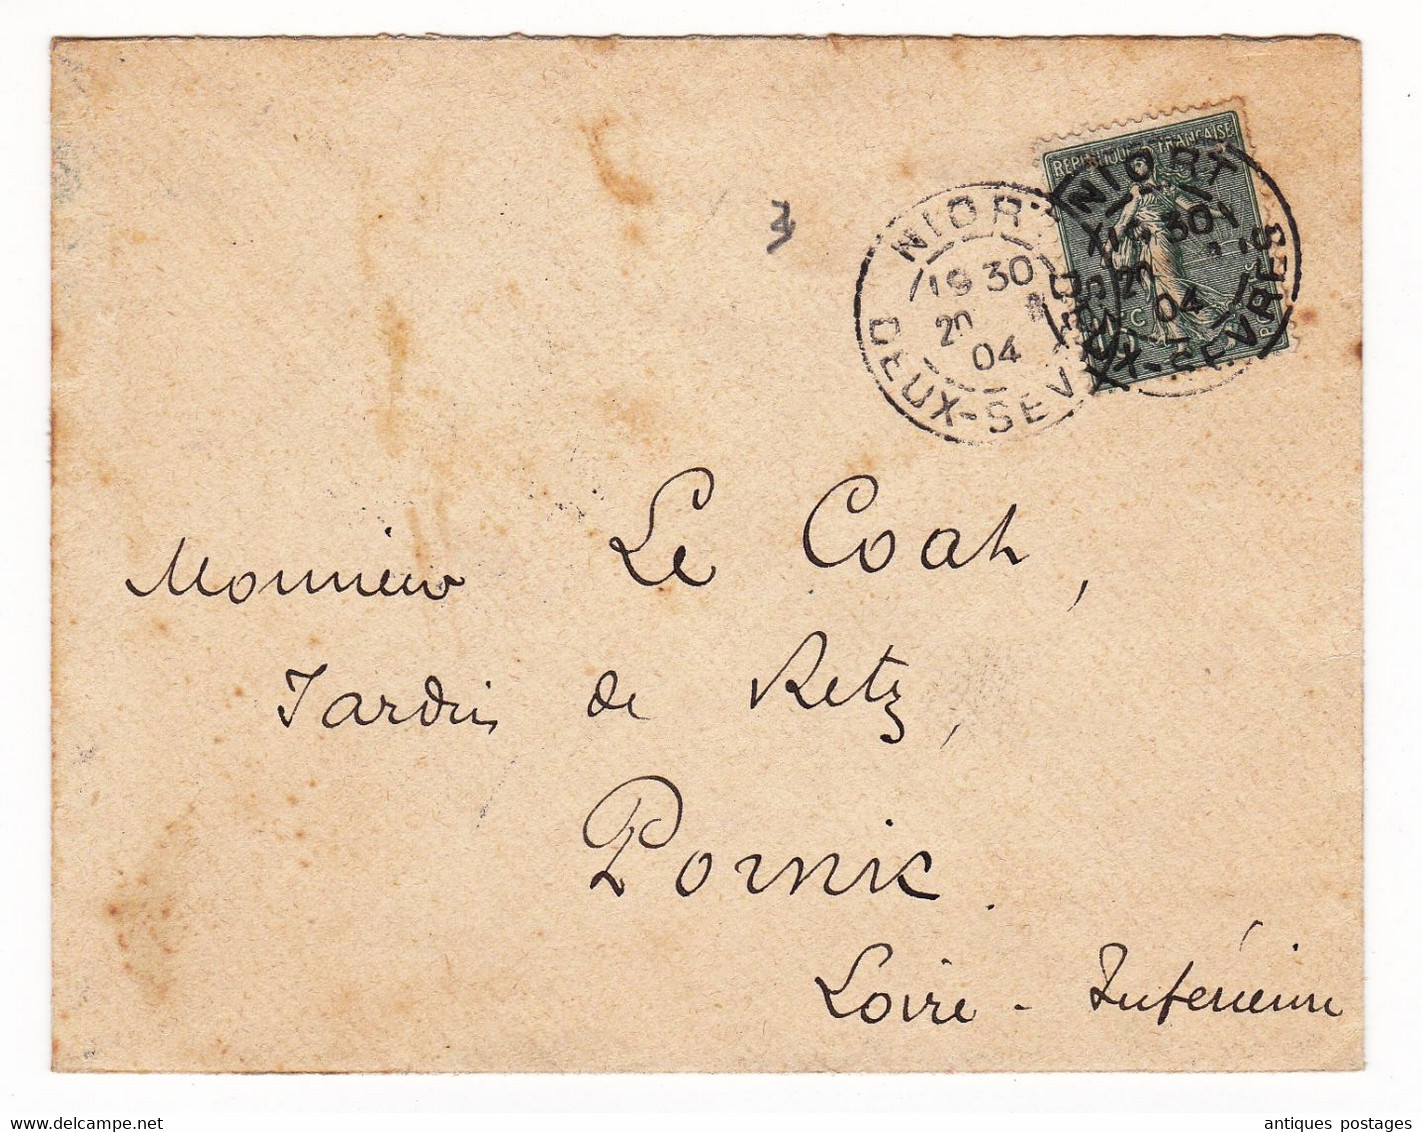 REPUBLIQUE FRANÇAISE
NIORT
19 30
20
04
DEUX-SEVRES
NIORT
30
20
04
DEUX-SEVRES
3
Monsieur Le Coat,
Jardin de Retz,
Pornic.
Loire - Inférieure
www.delcampe.net
antiques postages